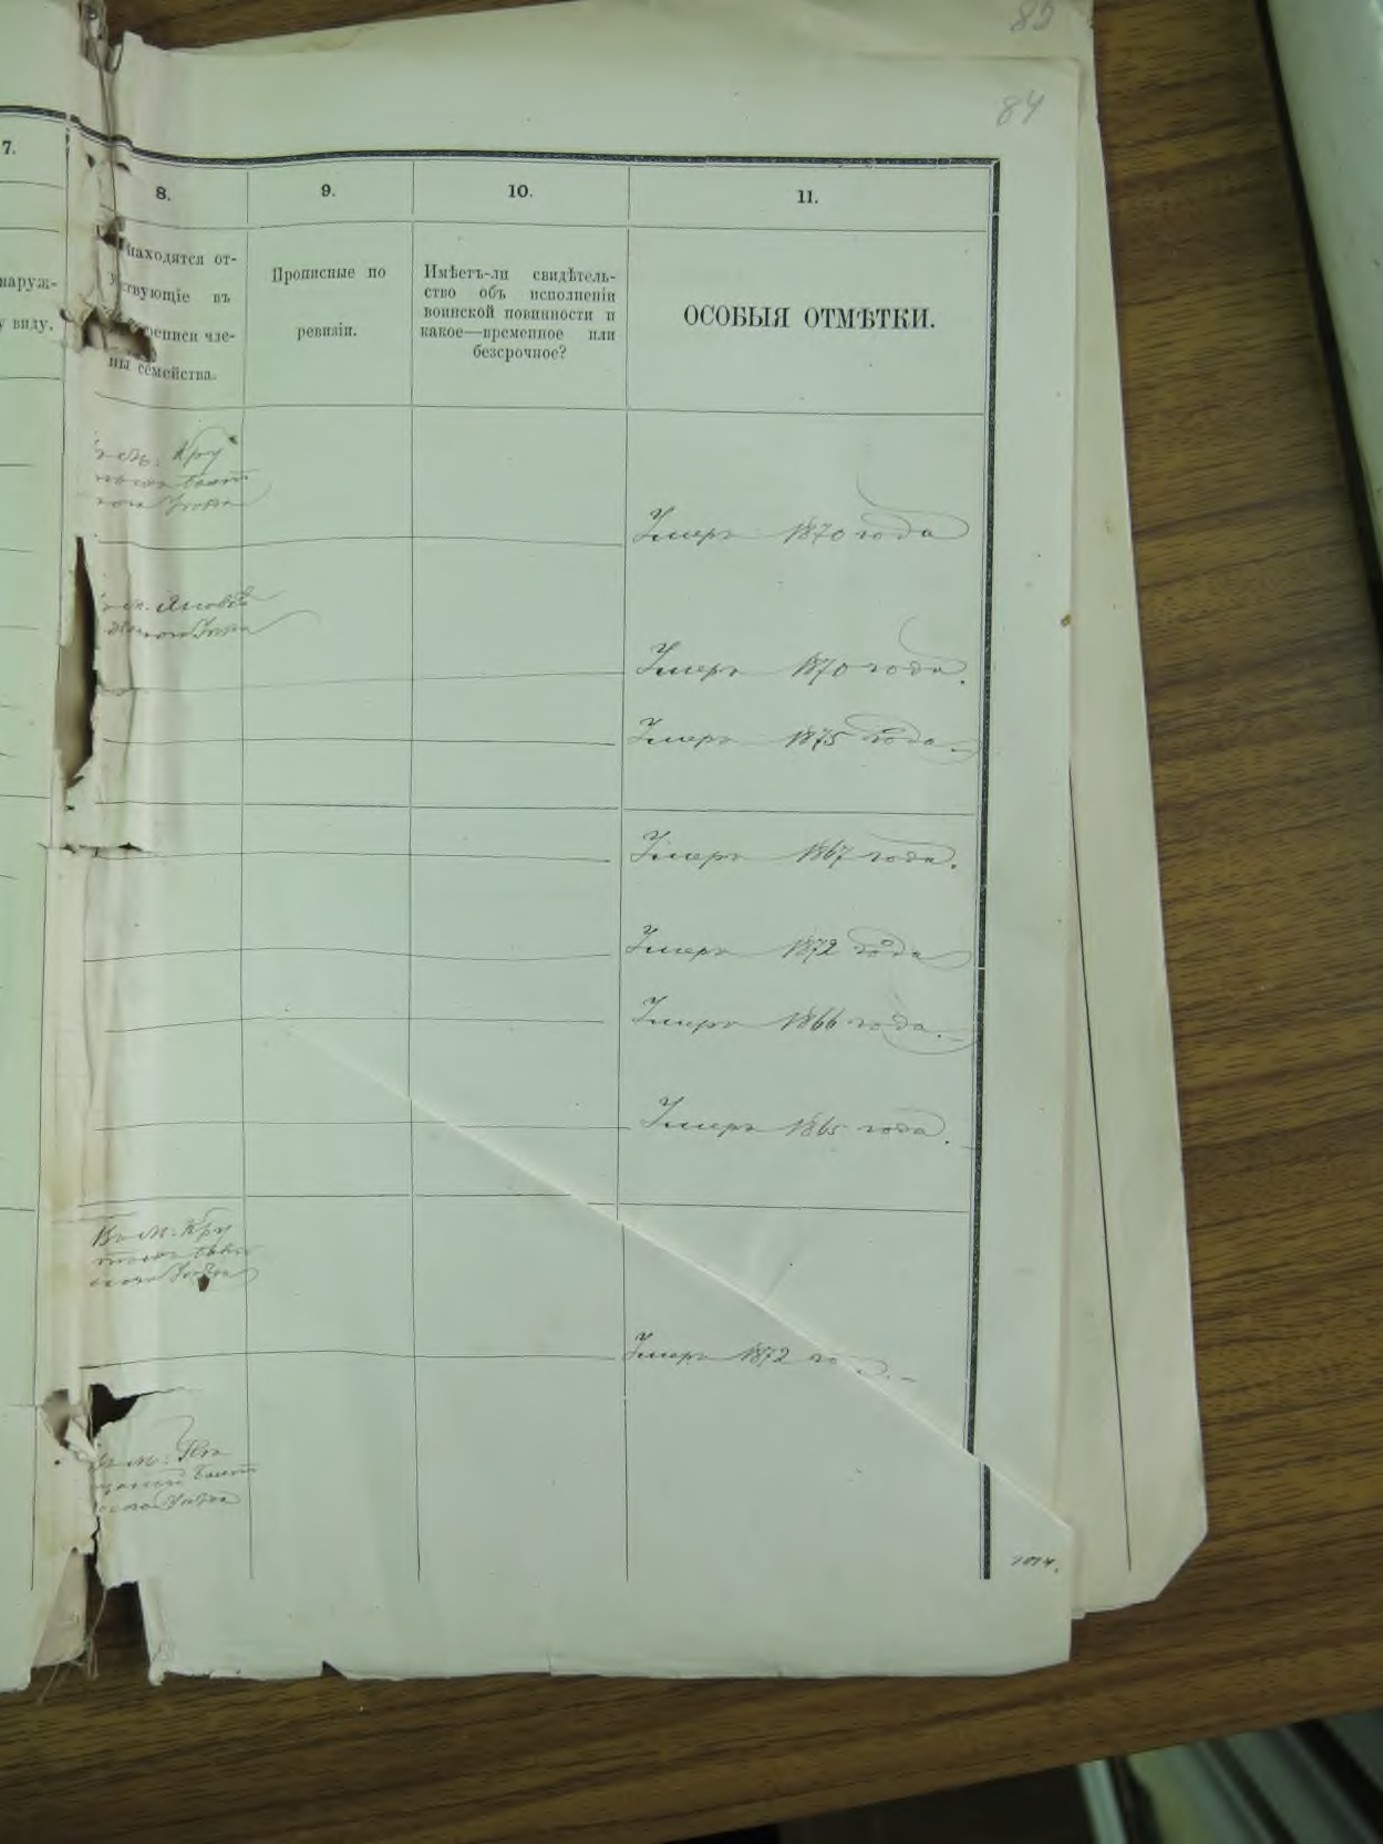 85
84
7.
8.
9.
10.
11.
наруж-
у виду.
находятся от-
ствующіе въ
реписи чле-
ны семейства.
Прописные по
ревизіи.
Имѣетъ-ли свидѣтель-
ство объ исполненіи
воинской повинности и
какое—временное или
безсрочное?
ОСОБЫЯ ОТМѢТКИ.
Кру
Умеръ 1870 года
Умеръ 1870 года.
Умеръ 1875 года.
Умеръ 1867 года.
Умеръ 1872 года
Умеръ 1866 года.
Умеръ 1865 года.
Въ м. Кру
Умеръ 1872 го